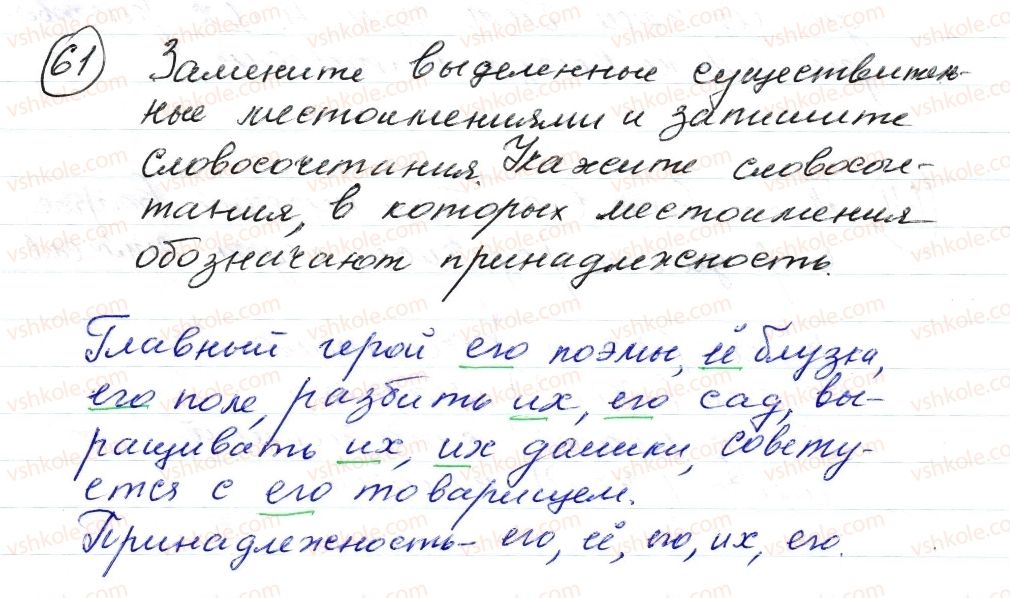 61 Замените выделенные существитель-
ные местоимениями и запишите
словосочетания. Укажите словосоче-
тания, в которых местоимения
обозначают принадлежность.
Главный герой его поэмы, её блузка,
его поле, разбить их, его сад, вы-
ращивать их, их домики, совету-
ется с его товарищем.
Принадлежность - его, её, его, их, его.